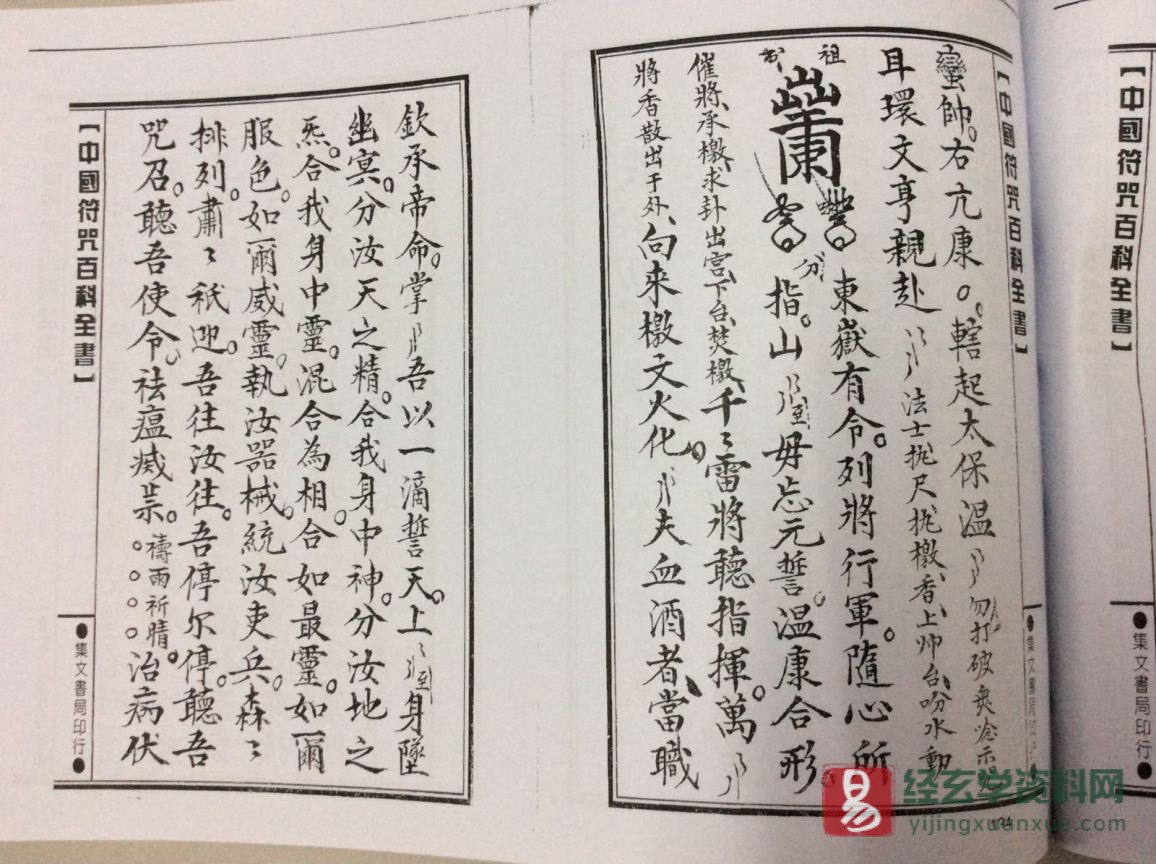 【中國符咒百科全書】
●集文書局印行●
【中國符咒百科全書】
集文書局印行
蠻帥。右亢康。轄起太保溫勿打破
耳環文亨親赴法士執尺執檄香、上帅台、吩水動
祖
東嶽有令。列將行軍。隨心所
指。山至毋忘元誓。溫康合形
催將、承檄、求卦出宮、下台、焚檄、千〻雷將聽指揮。萬
將香散出于外、向來檄文火化。夫血酒者、當職
欽承帝命。掌吾以一滴誓天。上身墜
幽冥。分汝天之精。合我身中神。分汝地之
炁。合我身中靈。混合為相。合如最靈。如爾
服色。如爾威靈。執汝器械。統汝吏兵。森〻
排列。肅〻袛迎。吾往汝往。吾停尔停。聽吾
咒召。聽吾使令。祛瘟烕祟。禱雨祈晴。治病伏
【中國符咒百科全書】
●集文書局印行●
易
经玄学资料网
yijingxuanxue.com